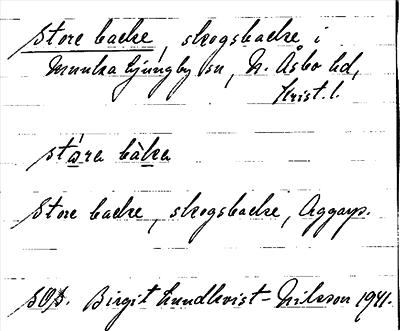 Store backe, skogsbacke i
Munka Ljungby sn, N. Åsbo hd,
Krist. l.
stára bàka
Store backe, skogsbacke, Aggarp.
Birgit Lundkvist-Nilsson 1941.